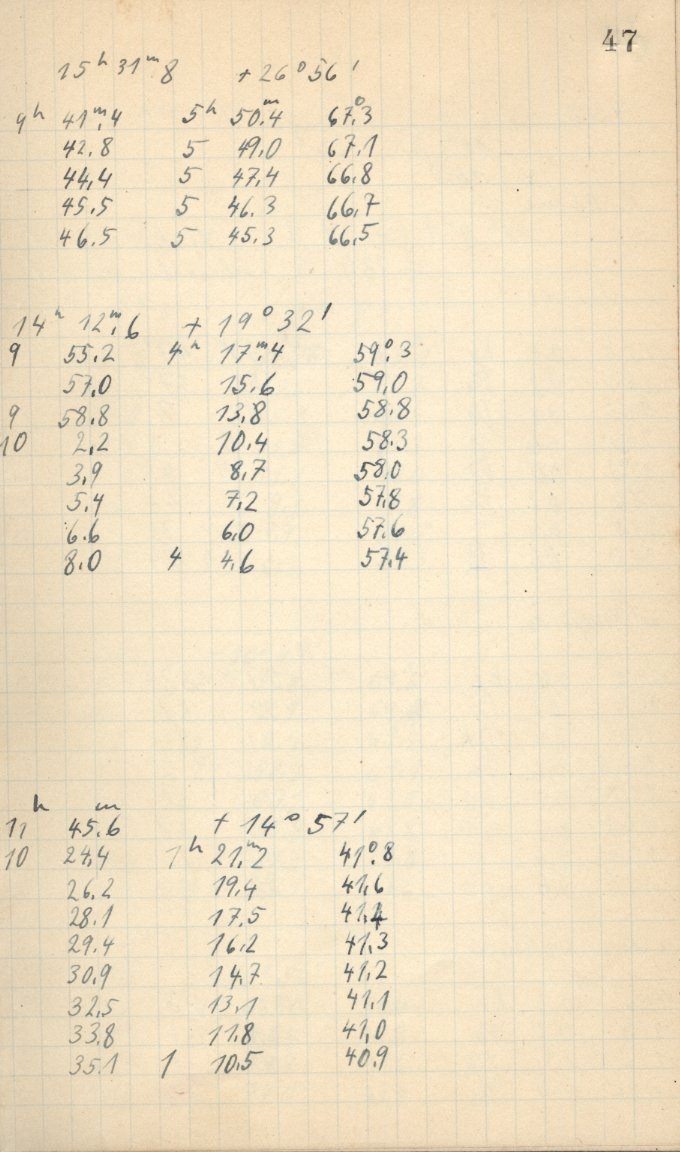 47
15ʰ 31ᵐ8 + 26° 56'
9ʰ 41ᵐ.4 5ʰ 50ᵐ.4 67°.3
42.8 5 49.0 67.1
44.4 5 47.4 66.8
45.5 5 46.3 66.7
46.5 5 45.3 66.5
14ʰ 12ᵐ.6 + 19° 32'
9 55.2 4ʰ 17ᵐ.4 59°.3
57.0 15.6 59.0
9 58.8 13.8 58.8
10 2.2 10.4 58.3
3.9 8.7 58.0
5.4 7.2 57.8
6.6 6.0 57.6
8.0 4 4.6 57.4
11ʰ 45ᵐ.6 + 14° 57'
10 24.4 1ʰ 21ᵐ.2 41°.8
26.2 19.4 41.6
28.1 17.5 41.4
29.4 16.2 41.3
30.9 14.7 41.2
32.5 13.1 41.1
33.8 11.8 41.0
35.1 1 10.5 40.9